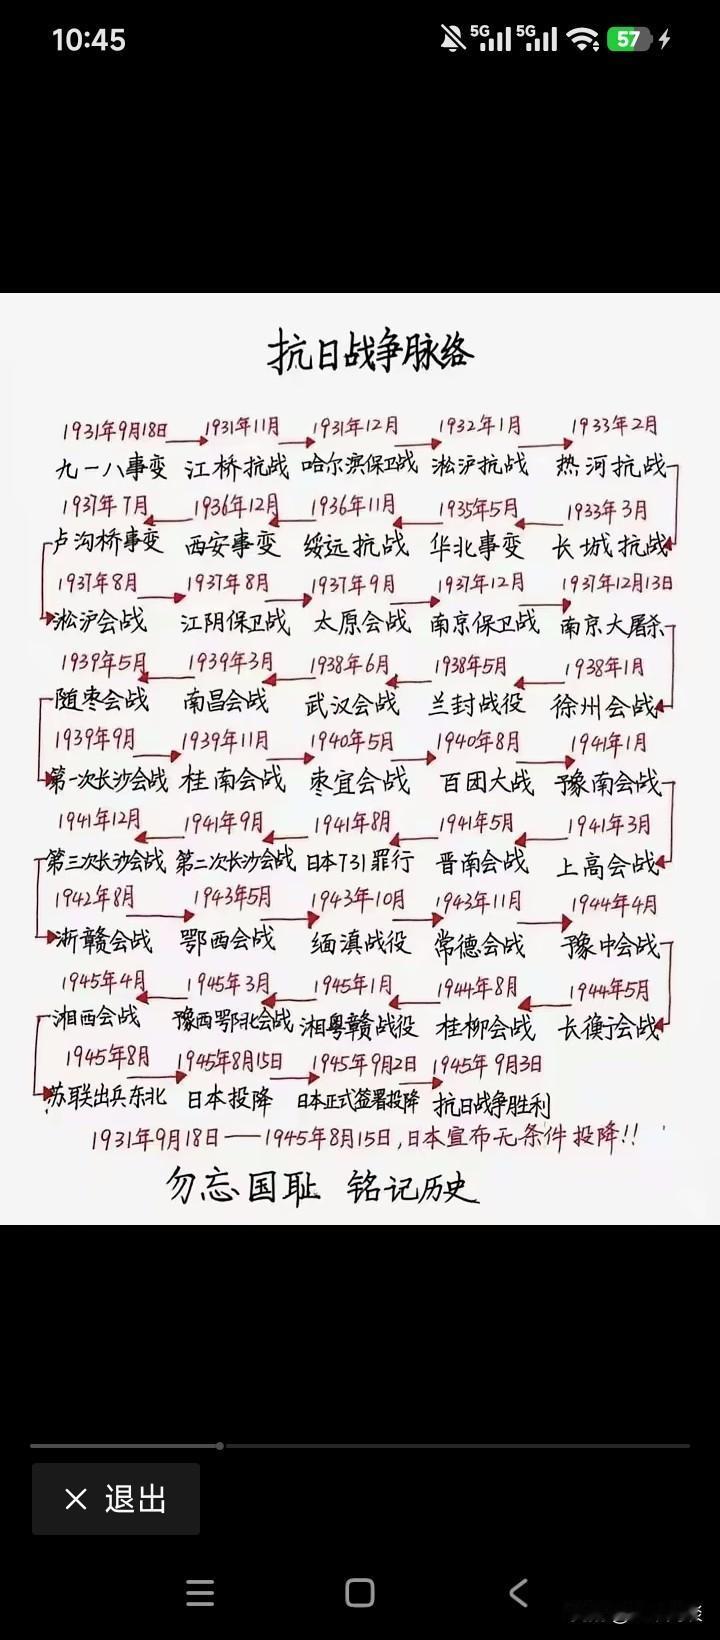 10:45
5G 5G 57
抗日战争脉络
1931年9月18日 1931年11月 1931年12月 1932年1月 1933年2月
九一八事变 江桥抗战 哈尔滨保卫战 淞沪抗战 热河抗战
1937年7月 1936年12月 1936年11月 1935年5月 1933年3月
卢沟桥事变 西安事变 绥远抗战 华北事变 长城抗战
1937年8月 1937年8月 1937年9月 1937年12月 1937年12月13日
淞沪会战 江阴保卫战 太原会战 南京保卫战 南京大屠杀
1939年5月 1939年3月 1938年6月 1938年5月 1938年1月
随枣会战 南昌会战 武汉会战 兰封战役 徐州会战
1939年9月 1939年11月 1940年5月 1940年8月 1941年1月
第一次长沙会战 桂南会战 枣宜会战 百团大战 豫南会战
1941年12月 1941年9月 1941年8月 1941年5月 1941年3月
第三次长沙会战 第二次长沙会战 日本731罪行 晋南会战 上高会战
1942年8月 1943年5月 1943年10月 1943年11月 1944年4月
浙赣会战 鄂西会战 缅滇战役 常德会战 豫中会战
1945年4月 1945年3月 1945年1月 1944年8月 1944年5月
湘西会战 豫西鄂北会战 湘粤赣战役 桂柳会战 长衡会战
1945年8月 1945年8月15日 1945年9月2日 1945年9月3日
苏联出兵东北 日本投降 日本正式签署投降 抗日战争胜利
1931年9月18日——1945年8月15日,日本宣布无条件投降!!
勿忘国耻 铭记历史
退出